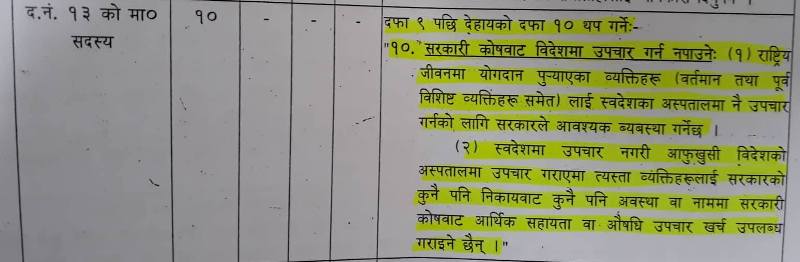 द.नं. १३ को मा० १० - - - दफा ९ पछि देहायको दफा १० थप गर्ने:-
सदस्य "१०. सरकारी कोषवाट विदेशमा उपचार गर्न नपाउनेः (१) राष्ट्रिय
जीवनमा योगदान पुऱ्याएका व्यक्तिहरू (वर्तमान तथा पूर्व
विशिष्ट व्यक्तिहरू समेत) लाई स्वदेशका अस्पतालमा नै उपचार
गर्नको लागि सरकारले आवश्यक ब्यबस्था गर्नेछ ।
(२) स्वदेशमा उपचार नगरी आफुखुसी विदेशको
अस्पतालमा उपचार गराएमा त्यस्ता व्यक्तिहरूलाई सरकारको
कुनै पनि निकायवाट कुनै पनि अवस्था वा नाममा सरकारी
कोषवाट आर्थिक सहायता वा औषधि उपचार खर्च उपलब्ध
गराइने छैन् ।"